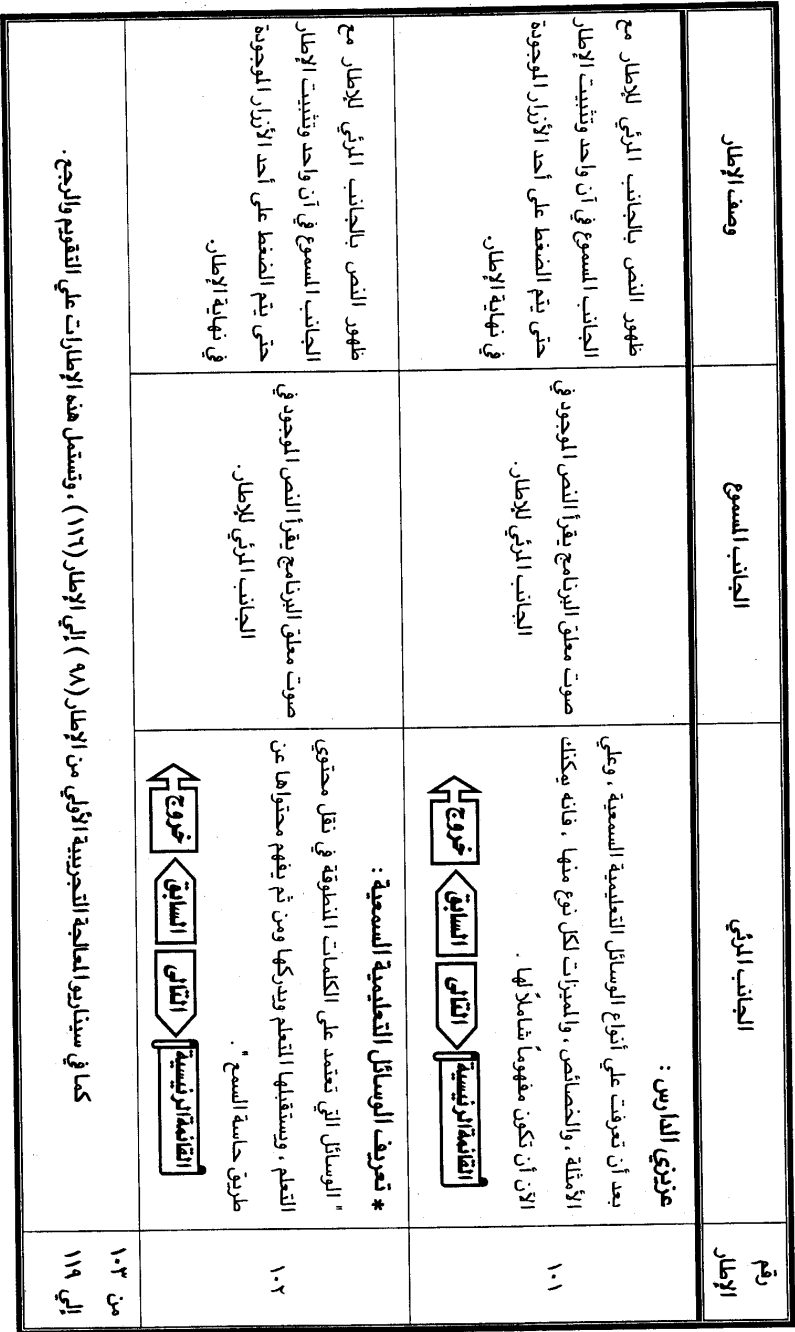 رقم
الإطار
الجانب المرئي
الجانب المسموع
وصف الإطار
١٠١
عزيزي الدارس :
بعد أن تعرفت علي أنواع الوسائل التعليمية السمعية ، وعلي
الأمثلة ، والخصائص ، والميزات لكل نوع منها ، فانه يمكنك
الآن أن تكون مفهوماً شاملاً لها .
القائمة الرئيسية
التالى
السابق
خروج
صوت معلق البرنامج يقرأ النص الموجود في
الجانب المرئي للإطار.
ظهور النص بالجانب المرئي للإطار مع
الجانب المسموع في آن واحد وتثبيت الإطار
حتى يتم الضغط على أحد الأزرار الموجودة
في نهاية الإطار.
١٠٢
* تعريف الوسائل التعليمية السمعية :
" الوسائل التي تعتمد على الكلمات المنطوقة في نقل محتوي
التعلم ، ويستقبلها المتعلم ويدركها ومن ثم يفهم محتواها عن
طريق حاسة السمع " .
القائمة الرئيسية
التالى
السابق
خروج
صوت معلق البرنامج يقرأ النص الموجود في
الجانب المرئي للإطار.
ظهور النص بالجانب المرئي للإطار مع
الجانب المسموع في آن واحد وتثبيت الإطار
حتى يتم الضغط على أحد الأزرار الموجودة
في نهاية الإطار.
من ١٠٣
إلي ١١٩
كما في سيناريو المعالجة التجريبية الأولي من الإطار (٩٨) إلي الإطار (١١٦) ، وتستمل هذه الإطارات علي التقويم والرجع .